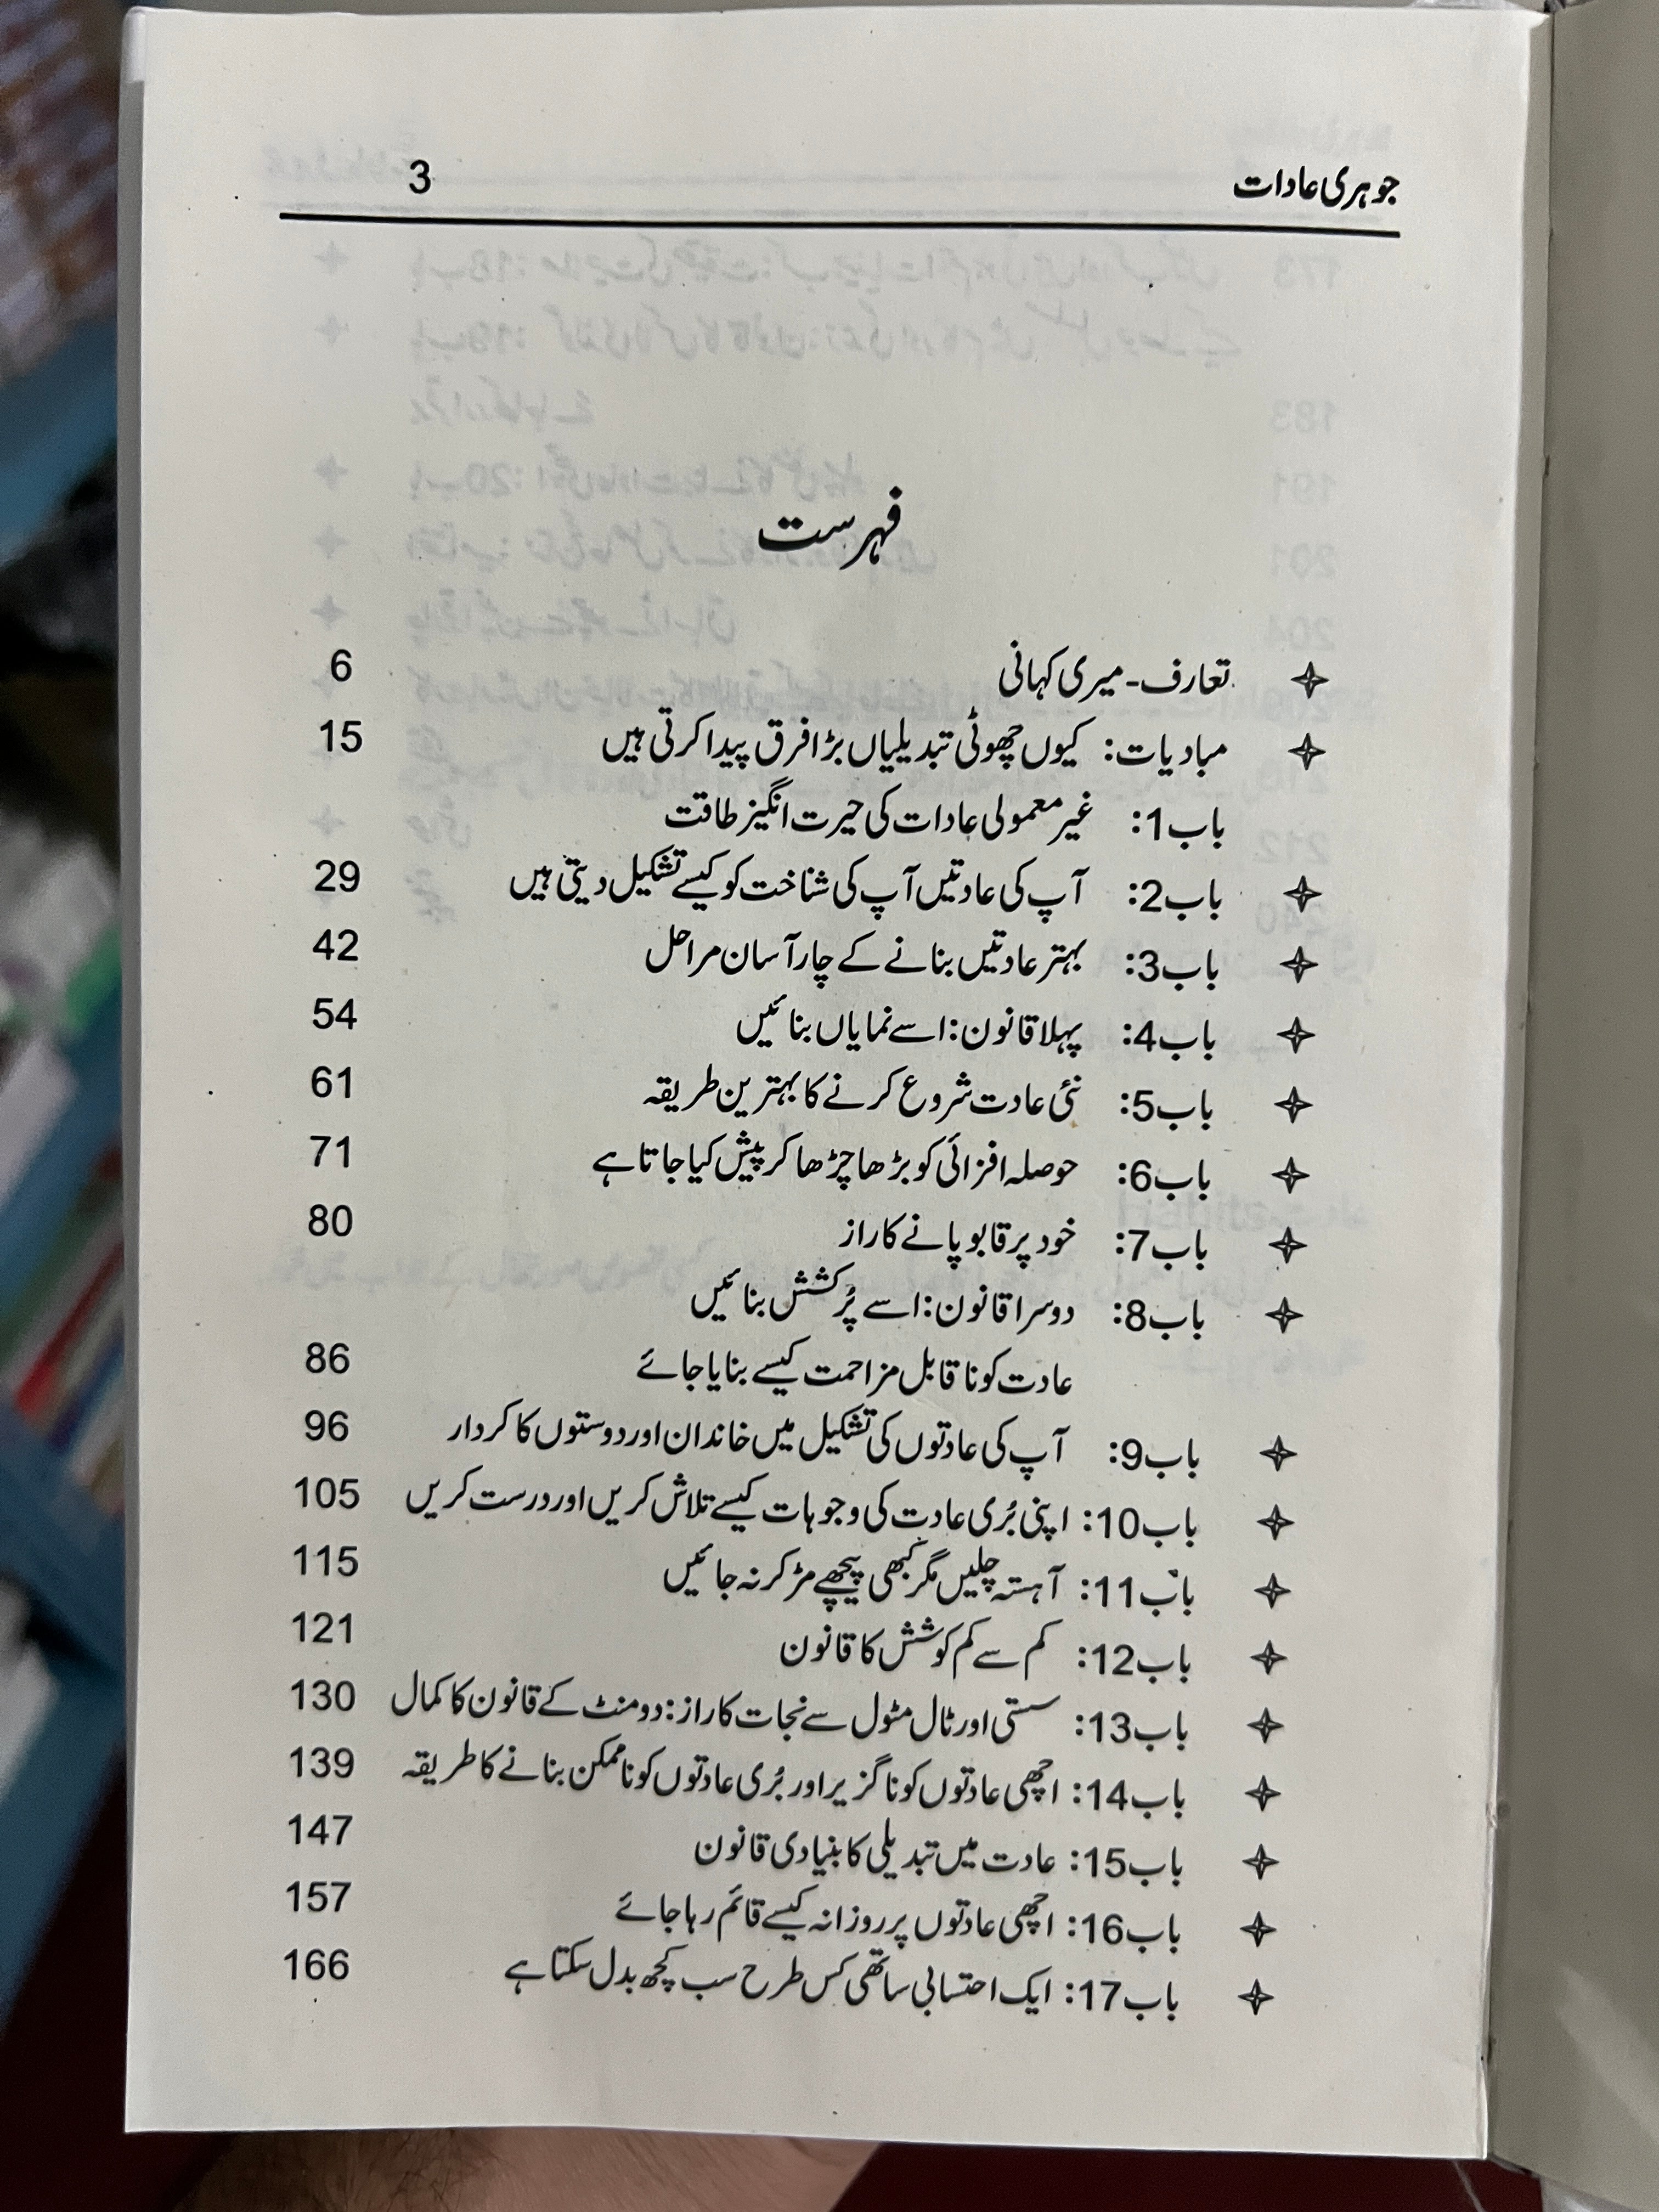 جوہری عادات 3
فہرست
تعارف - میری کہانی 6
مبادیات: کیوں چھوٹی تبدیلیاں بڑا فرق پیدا کرتی ہیں 15
باب1: غیر معمولی عادات کی حیرت انگیز طاقت
باب2: آپ کی عادتیں آپ کی شناخت کو کیسے تشکیل دیتی ہیں 29
باب3: بہتر عادتیں بنانے کے چار آسان مراحل 42
باب4: پہلا قانون: اسے نمایاں بنائیں 54
باب5: نئی عادت شروع کرنے کا بہترین طریقہ 61
باب6: حوصلہ افزائی کو بڑھا چڑھا کر پیش کیا جاتا ہے 71
باب7: خود پر قابو پانے کا راز 80
باب8: دوسرا قانون: اسے پُرکشش بنائیں
عادت کو ناقابل مزاحمت کیسے بنایا جائے 86
باب9: آپ کی عادتوں کی تشکیل میں خاندان اور دوستوں کا کردار 96
باب10: اپنی بُری عادت کی وجوہات کیسے تلاش کریں اور درست کریں 105
باب11: آہستہ چلیں مگر کبھی پیچھے مڑ کر نہ جائیں 115
باب12: کم سے کم کوشش کا قانون 121
باب13: سستی اور ٹال مٹول سے نجات کا راز: دو منٹ کے قانون کا کمال 130
باب14: اچھی عادتوں کو ناگزیر اور بُری عادتوں کو ناممکن بنانے کا طریقہ 139
باب15: عادت میں تبدیلی کا بنیادی قانون 147
باب16: اچھی عادتوں پر روزانہ کیسے قائم رہا جائے 157
باب17: ایک احتسابی ساتھی کس طرح سب کچھ بدل سکتا ہے 166